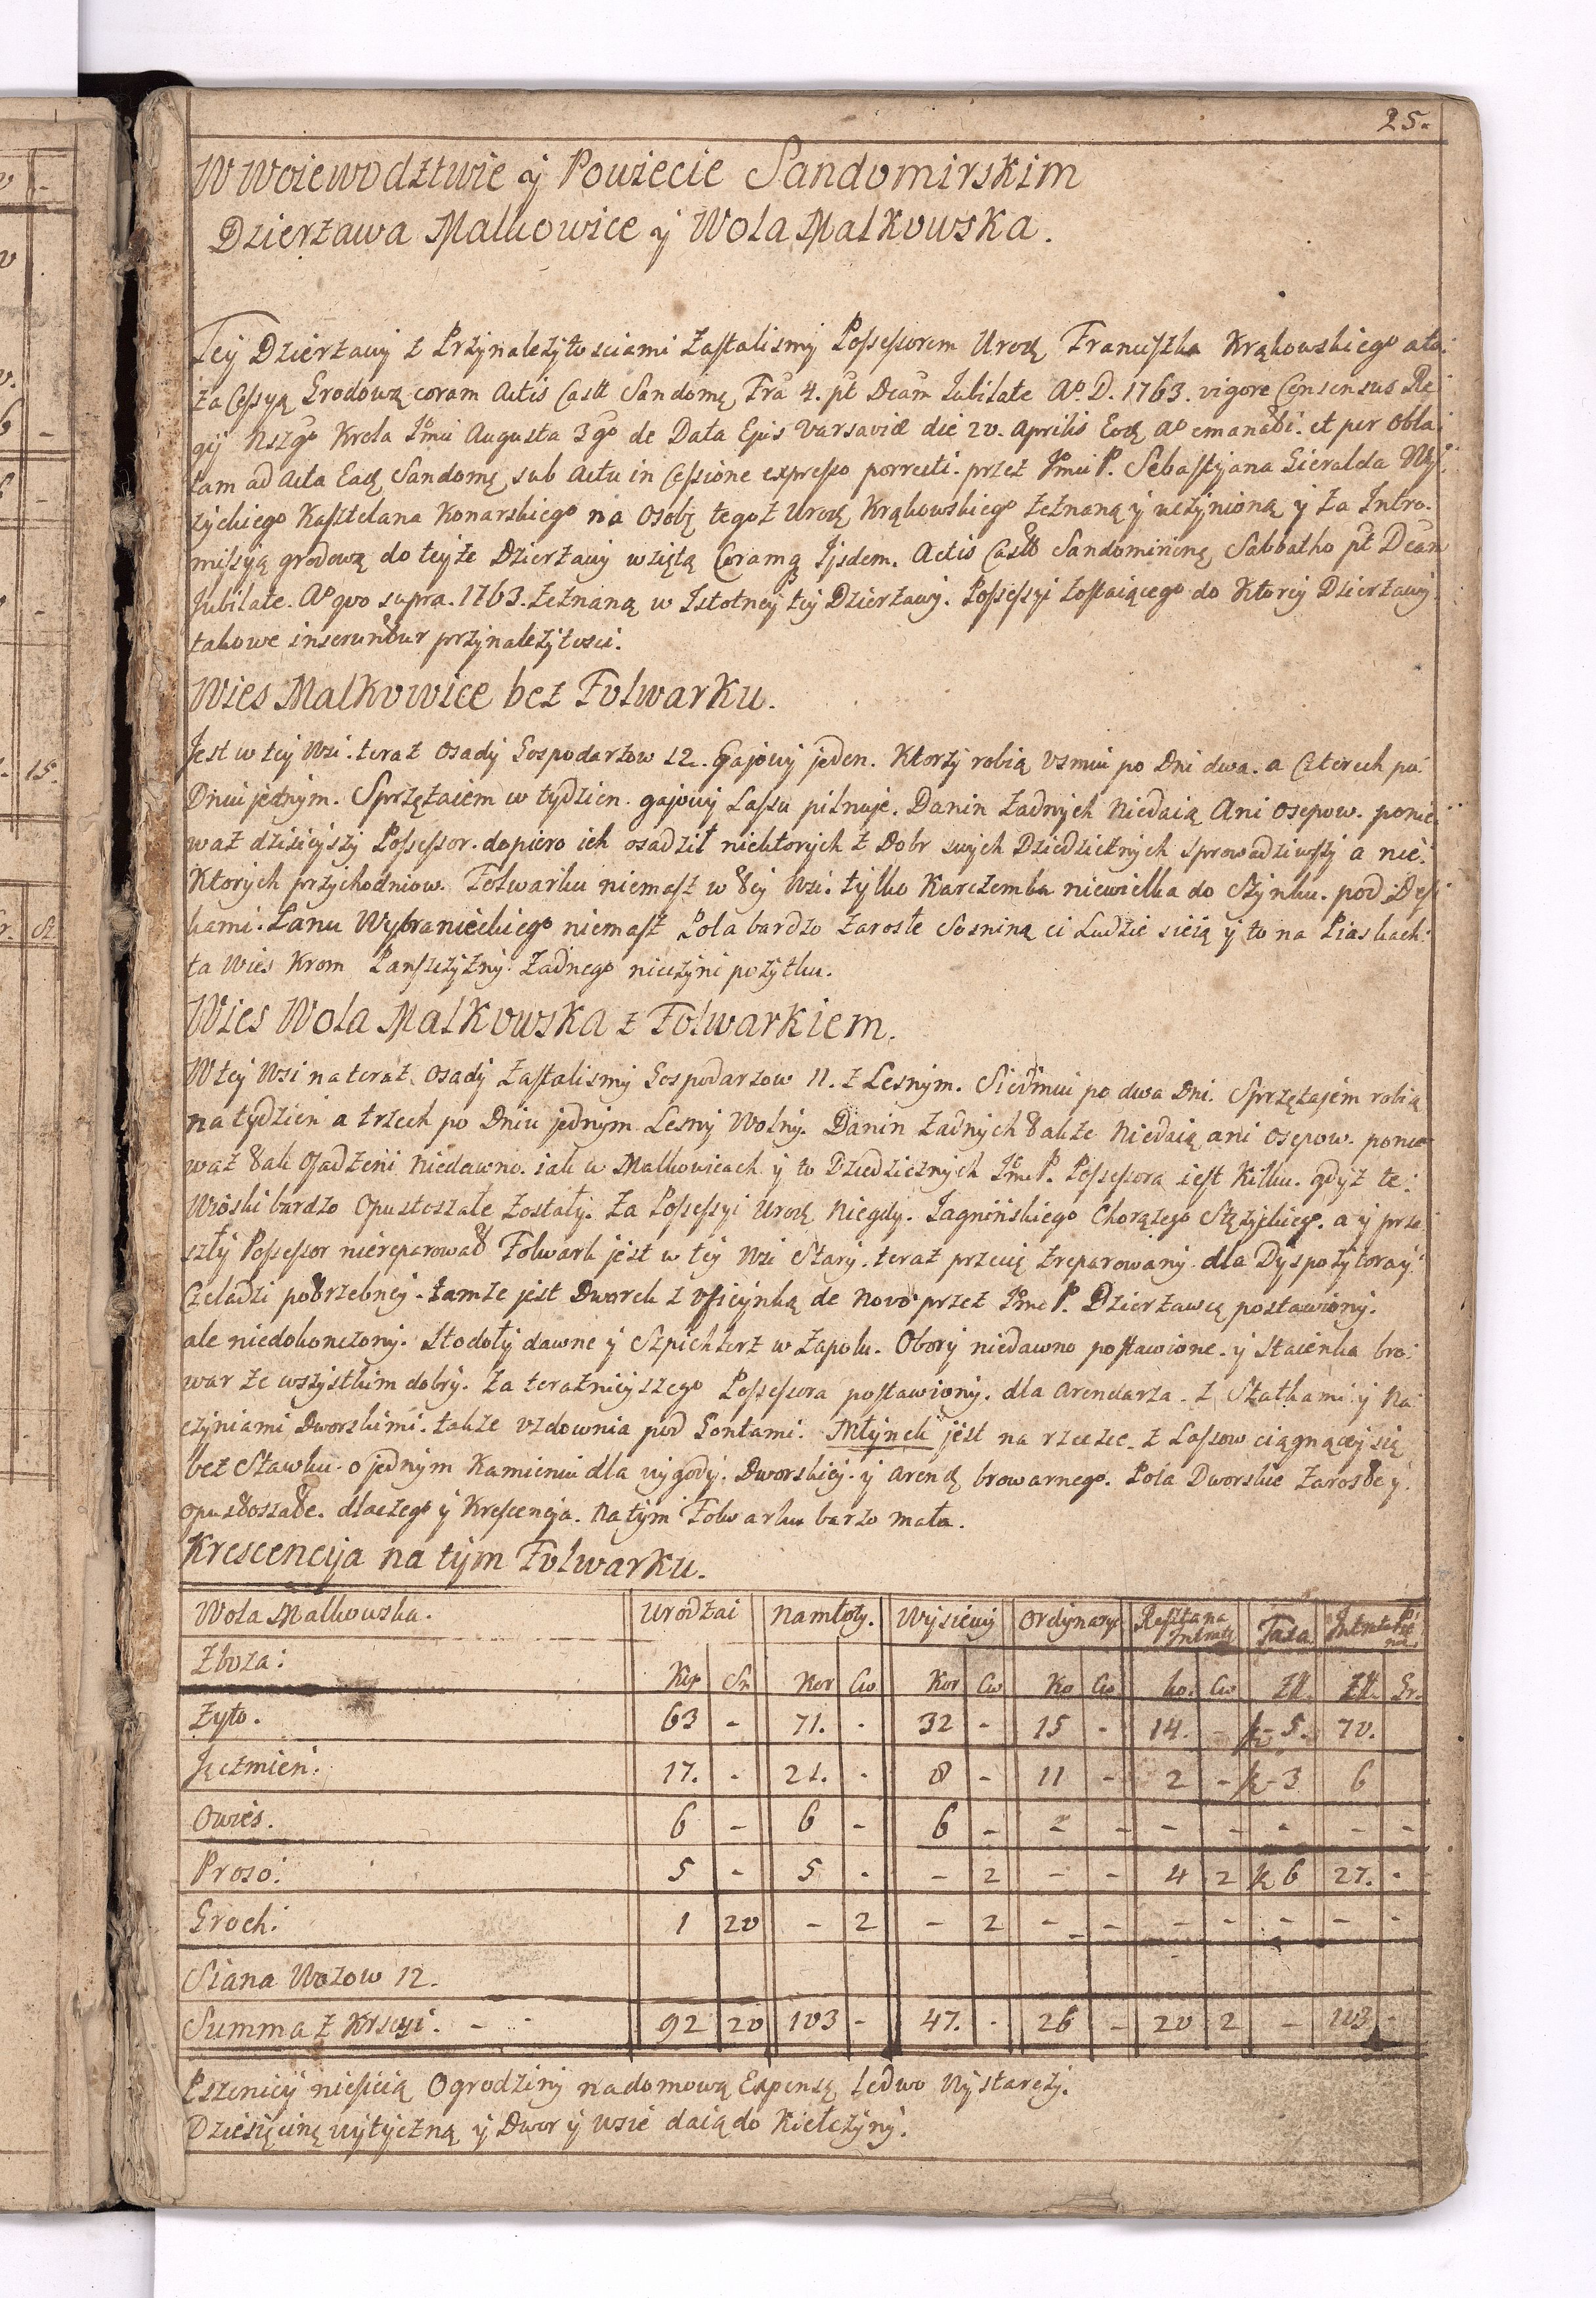 25.
W Woiewodztwie y Powiecie Sandomirskim
Dzierzawa Malkowice y Wola Malkowska.
Tey Dzierzawy z Przynalezytosciami zastalismy Possessorem Urod. Franciszka Krąkowskiego ato
za Cessyą Grodową coram Actis Castr Sandom. Fra 4. pt Dcam Jubilate A.o D. 1763. vigore Consensus Re:
gij Nszgo Krola Jmci Augusta 3go de Data Epis Varsaviæ die 20. Aprilis Eod. Ao emanati. et per Obla:
tam ad Acta Ead. Sandom. sub Actu in Cessione expresso porrecti. przez Jmci P. Sebastyana Gieralda Wy:
zyckiego Kasztelana Konarskiego na Osobę tegoz Urod. Krąkowskiego zeznaną y uczynioną y za Intro.
missyją grodową do teyze Dzierzawy wziętą Coram Ijsdem. Actis Castr Sandomirien. Sabbatho pt Dcam
Jubilate. Ao quo supra. 1763. zeznaną w Istotney tey Dzierzawy. Possessyi zostaiącego do Ktorey Dzierzawy
takowe inseruntur przynalezytosci.
Wies Malkowice bez Folwarku.
Jest w tey Wsi. teraz Osady Gospodarzow 12. Gajowy jeden. Ktorzy robią Usmiu po Dni dwa. a Czterech po
Dniu jednym. Sprzęzaiem w tydzien. gajowy Lassu pilnuje. Danin Zadnych Niedaią Ani Osepow. ponie:
waz dzisieyszy Possessor. dopiero ich osadził niektorych z Dobr swych Dziedzicznych sprowadziwszy a nie:
Ktorych przychodniow. Folwarku niemasz w tey Wsi. tylko Karczemka niewielka do Szynku. pod Des:
kami. Lanu Wybranieckiego niemasz Pola bardzo zarosłe Sosniną ci Ludzie sieią y to na Piaskach:
ta Wies Krom Panszczyzny. Zadnego nieczyni pozytku.
Wies Wola Malkowska z Folwarkiem.
W tey Wsi na teraz. Osady zastalismy Gospodarzow 11. z Lesnym. Siedmiu po dwa Dni. Sprzęzajem robią
na tydzien a trzech po Dniu jednym Lesny Wolny. Danin Zadnych takze Niedaią ani Osepow. ponie
waz tak Osadzeni Niedawno. iak w Malkowicach y to Dziedzicznych Jmci P. Possessora iest Kilku. gdyz te:
Wioski bardzo Opustoszałe zostały. za Possessyi Urod. Niegdy. Jagninskiego Chorązego Stęzyckiego. a y prze
szły Possessor niereparował Folwark jest w tey Wsi Stary. teraz przecię zreparowany. dla Dyspozytora y:
Czeladzi potrzebney. tamze jest Dworek z Oficynką de novo przez Jmci P. Dzierzawcę postawiony.
ale niedokonczony. Stodoły dawne y Szpichlerz w Zapolu. Obory niedawno postawione. y Staienka bro:
war ze wszystkim dobry. za teraznieyszego Possessora postawiony. dla Arendarza. z Statkami y Na
czyniami Dworskimi. takze Uzdownia pod Gontami. Młynek jest na rzeczce. z Lassow ciągnącey się
bez Stawku. o jednym Kamieniu dla wygody. Dworskiey. y Arend. browarnego. Pola Dworskie Zarosłe y.
opustoszałe. dlaczego y Krescencja. na tym Folwarku barzo mała.
Krescencyja na tym Folwarku.
Wola Malkowska. Urodzai Namłoty. Wysiewy Ordynary Reszta na Intratę Taxa Intrata Pie na.
Zboza: Kop Sn Kor Cw Kor Cw Ko Cw ko. Cw Zł. Zł. Gr.
Zyto. 63 - 71. - 32 - 15 - 14. - k- 5. 70.
Jęczmien: 17. - 21. - 8 - 11 - 2 - k-3 6
Owies. 6 - 6 - 6 - - - - - - - -
Proso: 5 - 5 - - 2 - - 4 2 k 6 27. -
Groch: 1 20 - 2 - 2 - - - - - - -
Siana Wozow 12.
Summa z Krscyi. - - 92 20 103 - 47. - 26 - 20 2 - 103 -
Pszenicy niesieią Ogrodziny na domową Expensę ledwo Wystarczy.
Dziesięcinę wytyczną y Dwor y Wsie daią do Kiełczyny.